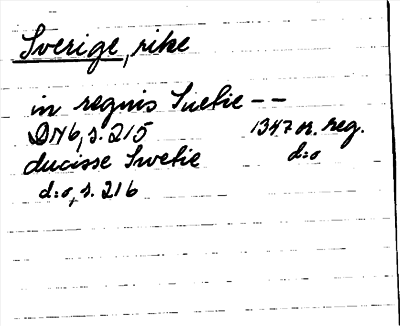 Sverige, rike
in regnis Suetie --
DN6, s. 215 1347 or. reg.
ducisse Swetie d:o
d:o, s. 216